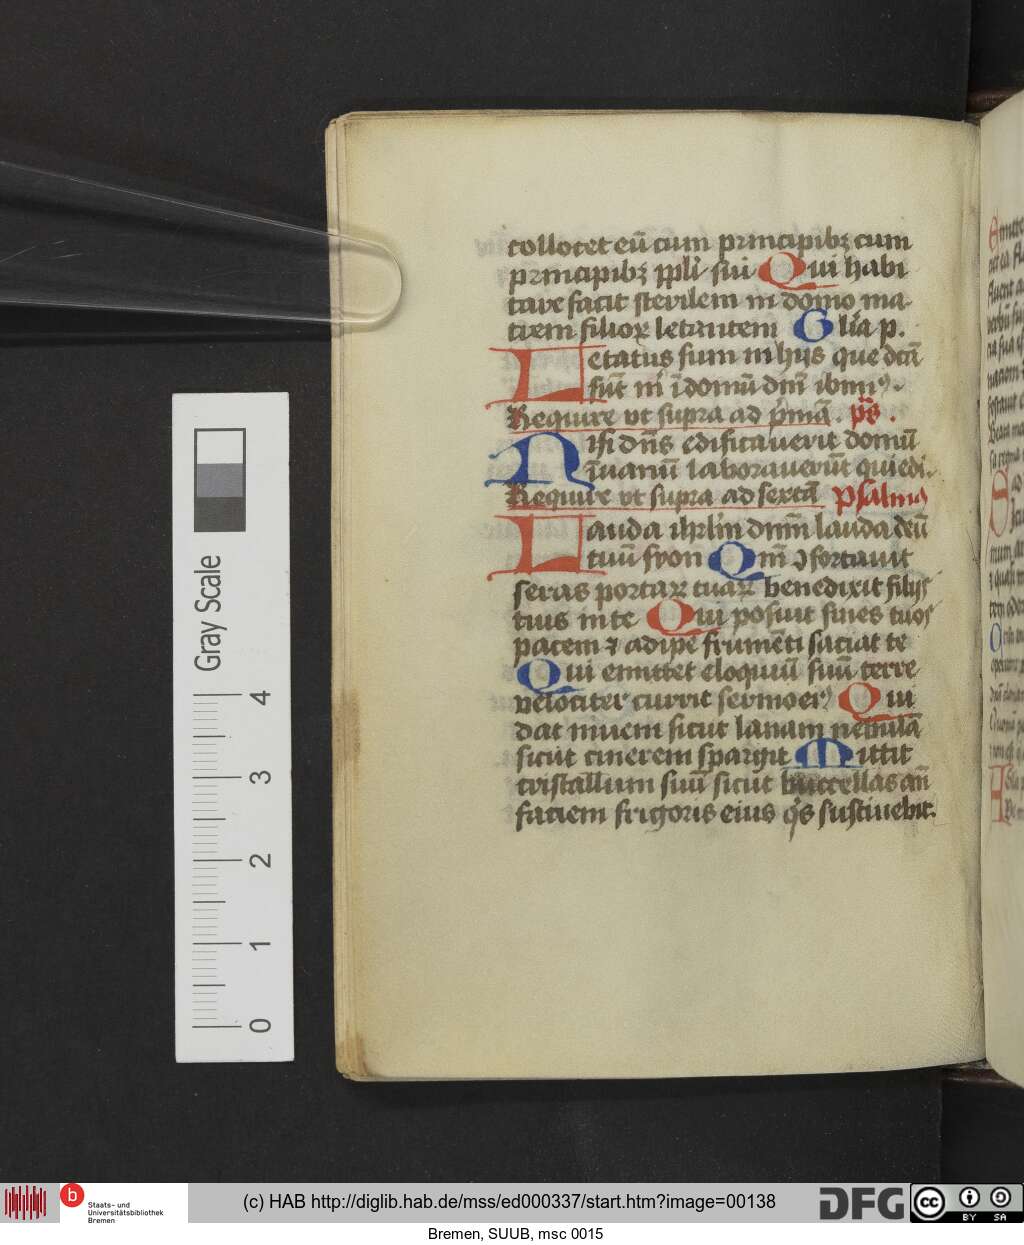 collocet eū cum principibꝫ cum
principibꝫ ppl'i sui Qui habi
tare facit sterilem in domo ma-
trem filioꝝ letantem Gl'ia p.
Letatus sum in hijs que dcā
sūt m' ī domū dn̄i ibimꝰ.
Require vt supra ad p'mā. ps̄.
Nisi dn̄s edificauerit domū
ī uanū laborauerūt qui edi.
Require vt supra ad sextā psalmꝰ
Lauda ihrl'm dn̄m lauda deū
tuū syon Qm̄ ꝯfortauit
seras portaꝝ tuaꝝ benedixit filijs
tuis in te Qui posuit fines tuos
pacem ⁊ adipe frumēti saciat te
Qui emittet eloquiū suū terre
velociter currit sermo eiꝰ Qui
dat niuem sicut lanam nebulā
sicut cinerem spargit Mittit
cristallum suū sicut buccellas an̄
faciem frigoris eius q's sustinebit.
Gray Scale
4
3
2
1
0
b Staats- und
Universitätsbibliothek
Bremen
(c) HAB http://diglib.hab.de/mss/ed000337/start.htm?image=00138
DFG
cc BY SA
Bremen, SUUB, msc 0015